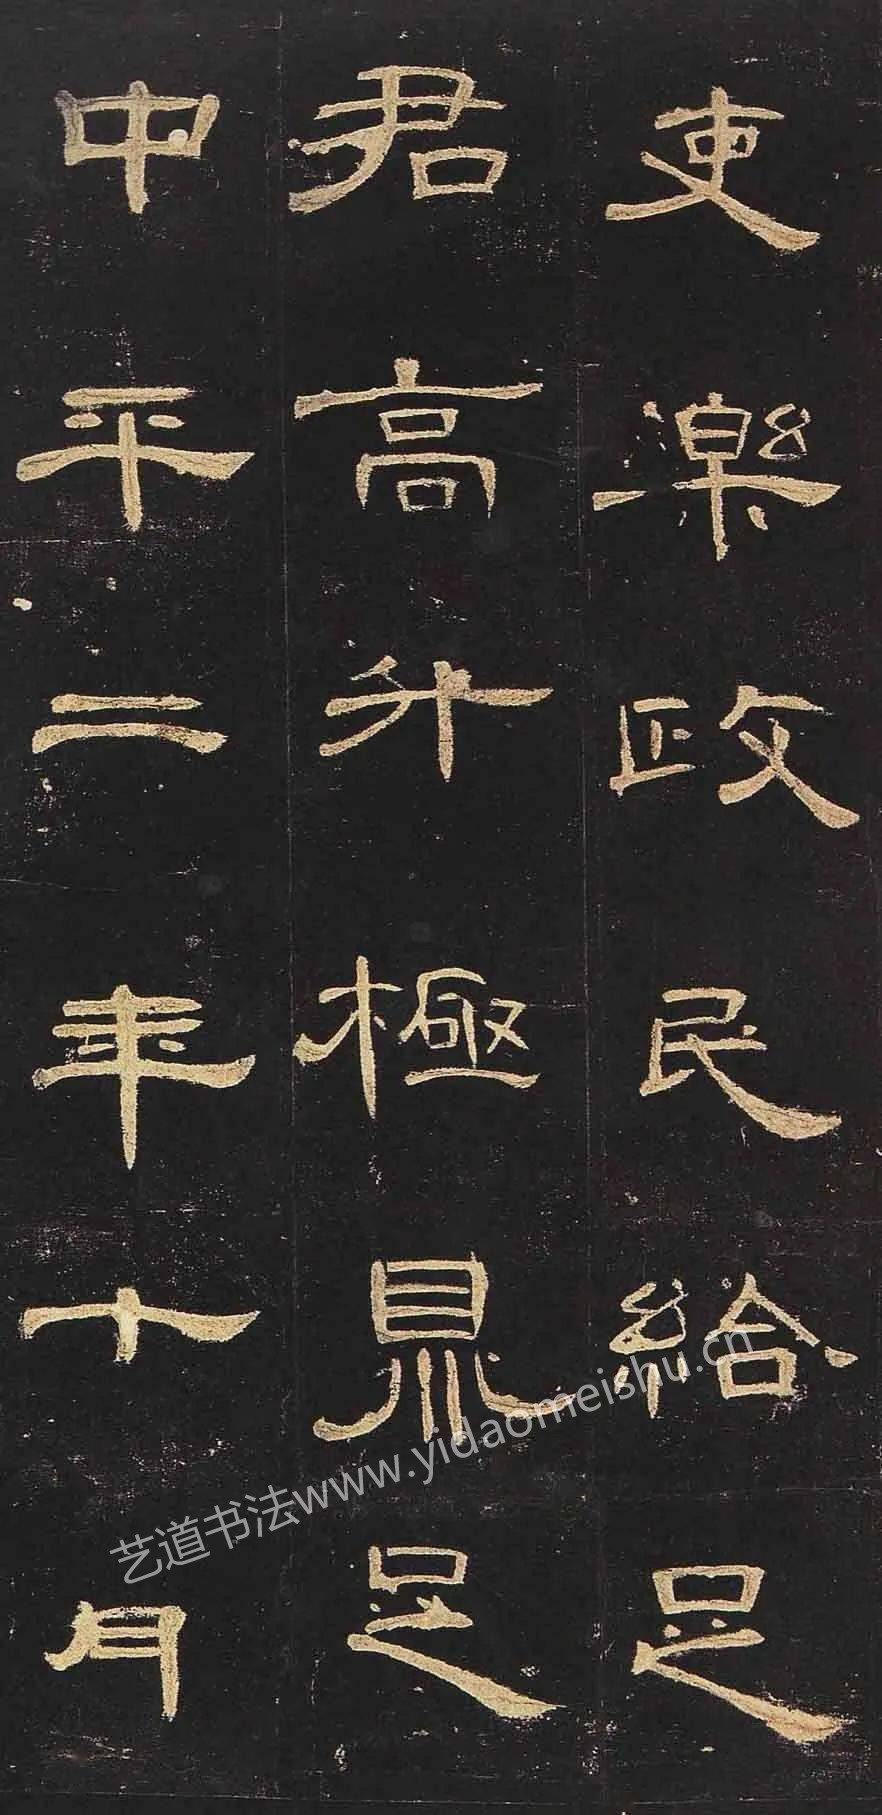 吏樂政民給足
君高升極鼎足
中平二年十月
艺道书法www.yidaomeishu.cn